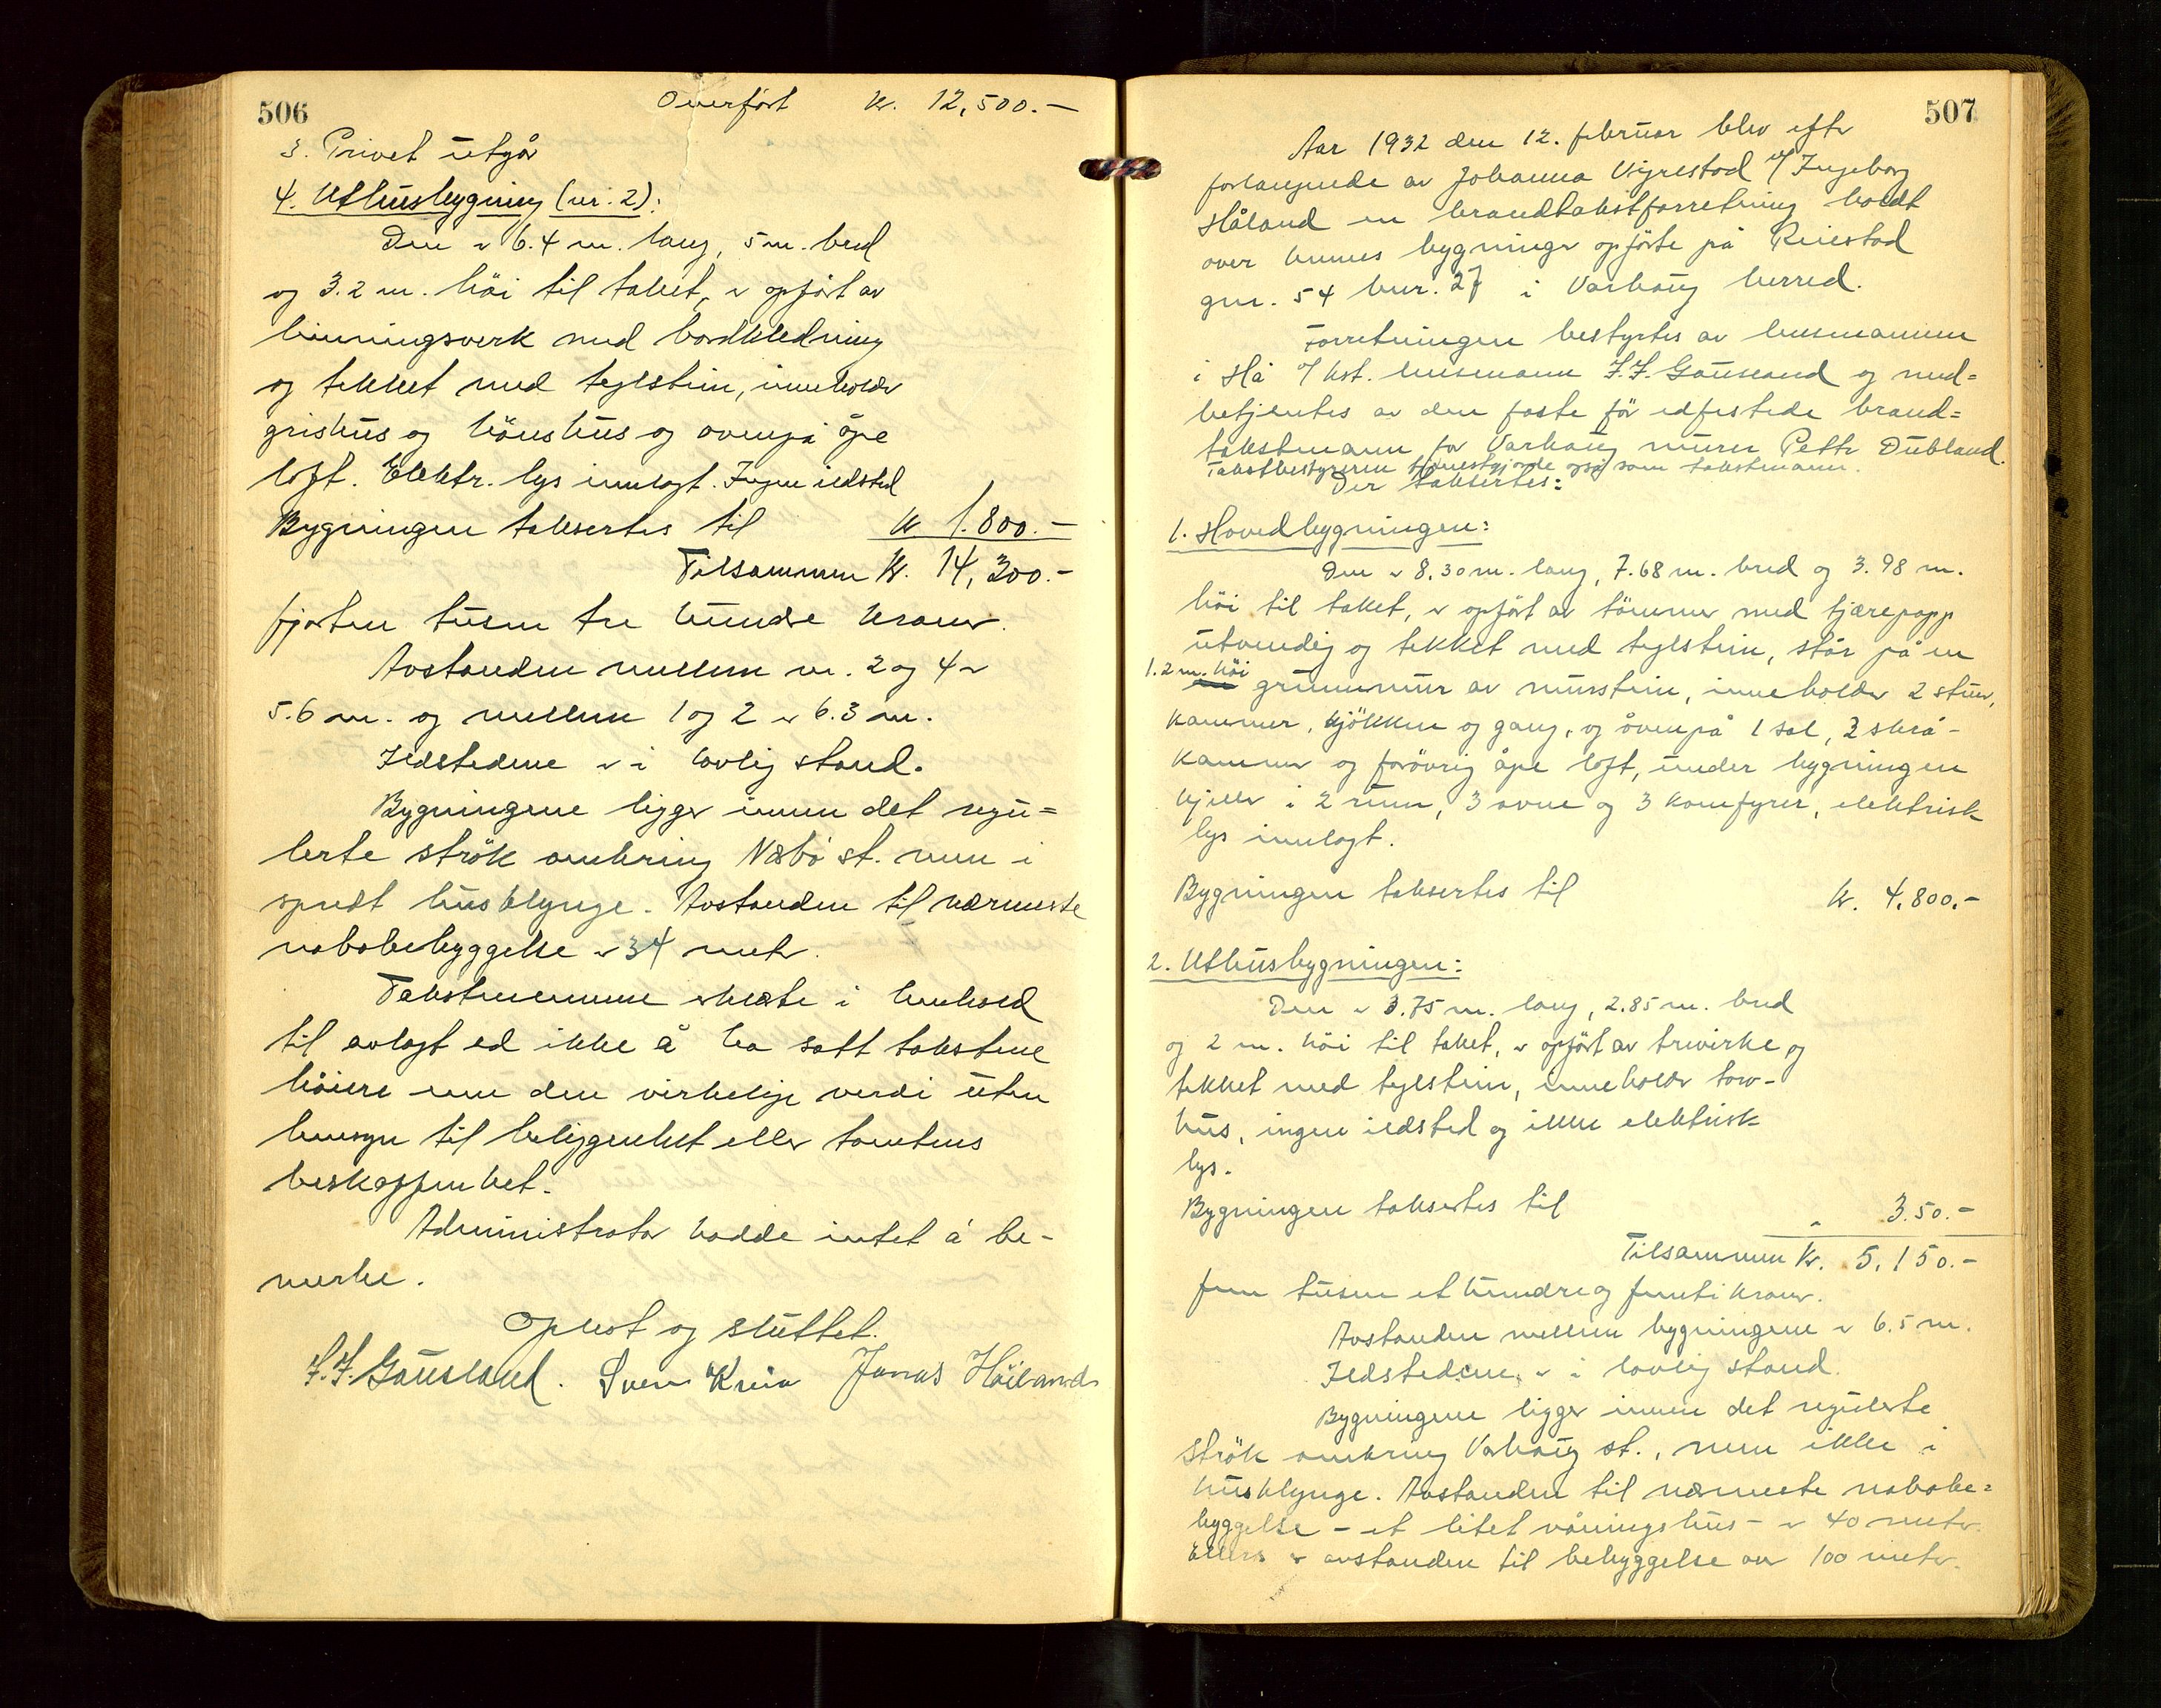 506
Overført kr. 12,500.-
3. Privet utgår
4. Uthusbygning (nr. 2):
Den er 6.4 m. lang, 5 m. bred
og 3.2 m. höi til taket, er opfört av
binningsverk med bordkledning
og tekket med teglstein, inneholder
grishus og hönshus og ovenpå åpe
loft. Elektr. lys innlagt. Ingen ildsted
Bygningen taksertes til kr. 1.800.-
Tilsammen kr. 14,300.-
fjorten tusen tre hundre kroner.
Avstanden mellem nr. 2 og 4 er
5.6 m. og mellem 1 og 2 er 6.3 m.
Ildstedene er i lovlig stand.
Bygningene ligger innen det regu=
lerte strök omkring Nærbö st. men i
spredt husklynge. Avstanden til nærmeste
nabobebyggelse er 34 meter.
Takstmennene erklærte i henhold
til avlagt ed ikke å ha satt takstene
höiere enn den virkelige verdi uten
hensyn til beliggenhet eller tomtens
beskaffenhet.
Administrator hadde intet å be-
merke.
Oplest og sluttet.
F. F. Gausland. Sven Kvia Jonas Höiland
507
Aar 1932 den 12. februar blev efter
forlangende av Johanna Vigrestad v/ Ingeborg
Håland en brandtakstforretning holdt
over hennes bygninger opförte på Reiestad
gnr. 54 bnr. 27 i Varhaug herred.
Forretningen bestyrtes av lensmannen
i Hå v/ kst. lensmann F. F. Gausland og med=
betjentes av den faste för edfestede brand=
takstmann for Varhaug murer Petter Dubland.
Takstbestyreren tjenestgjorde også som takstmann.
Der taksertes:
1. Hovedbygningen:
Den er 8.30 m. lang, 7.68 m. bred og 3.98 m.
höi til taket, er opfört av tömmer med tjærepapp
utvendig og tekket med teglstein, står på en
1.2 m. höi
grunnmur av murstein, inneholder 2 stuer,
kammer, kjökken og gang, og ovenpå 1 sal, 2 skrå-
kammer og forövrig åpe loft, under bygningen
kjeller i 2 rum, 3 ovne og 3 komfyrer, elektrisk
lys innlagt.
Bygningen taksertes til kr. 4,800.-
2. Uthusbygningen:
Den er 3.75 m. lang, 2.85 m. bred
og 2 m. höi til taket, er opfört av trevirke og
tekket med teglstein, inneholder torv-
hus, ingen ildsted og ikke elektrisk
lys.
Bygningen taksertes til " 3.50.-
Tilsammen kr. 5,150.-
fem tusen et hundre og femti kroner.
Avstanden mellem bygningene er 6.5 m.
Ildstedene er i lovlig stand.
Bygningene ligger innen det regulerte
strök omkring Varhaug st., men ikke i
husklynge. Avstanden til nærmeste nabobe=
byggelse - et litet våningshus - er 40 meter.
Ellers er avstanden til bebyggelse over 100 meter.